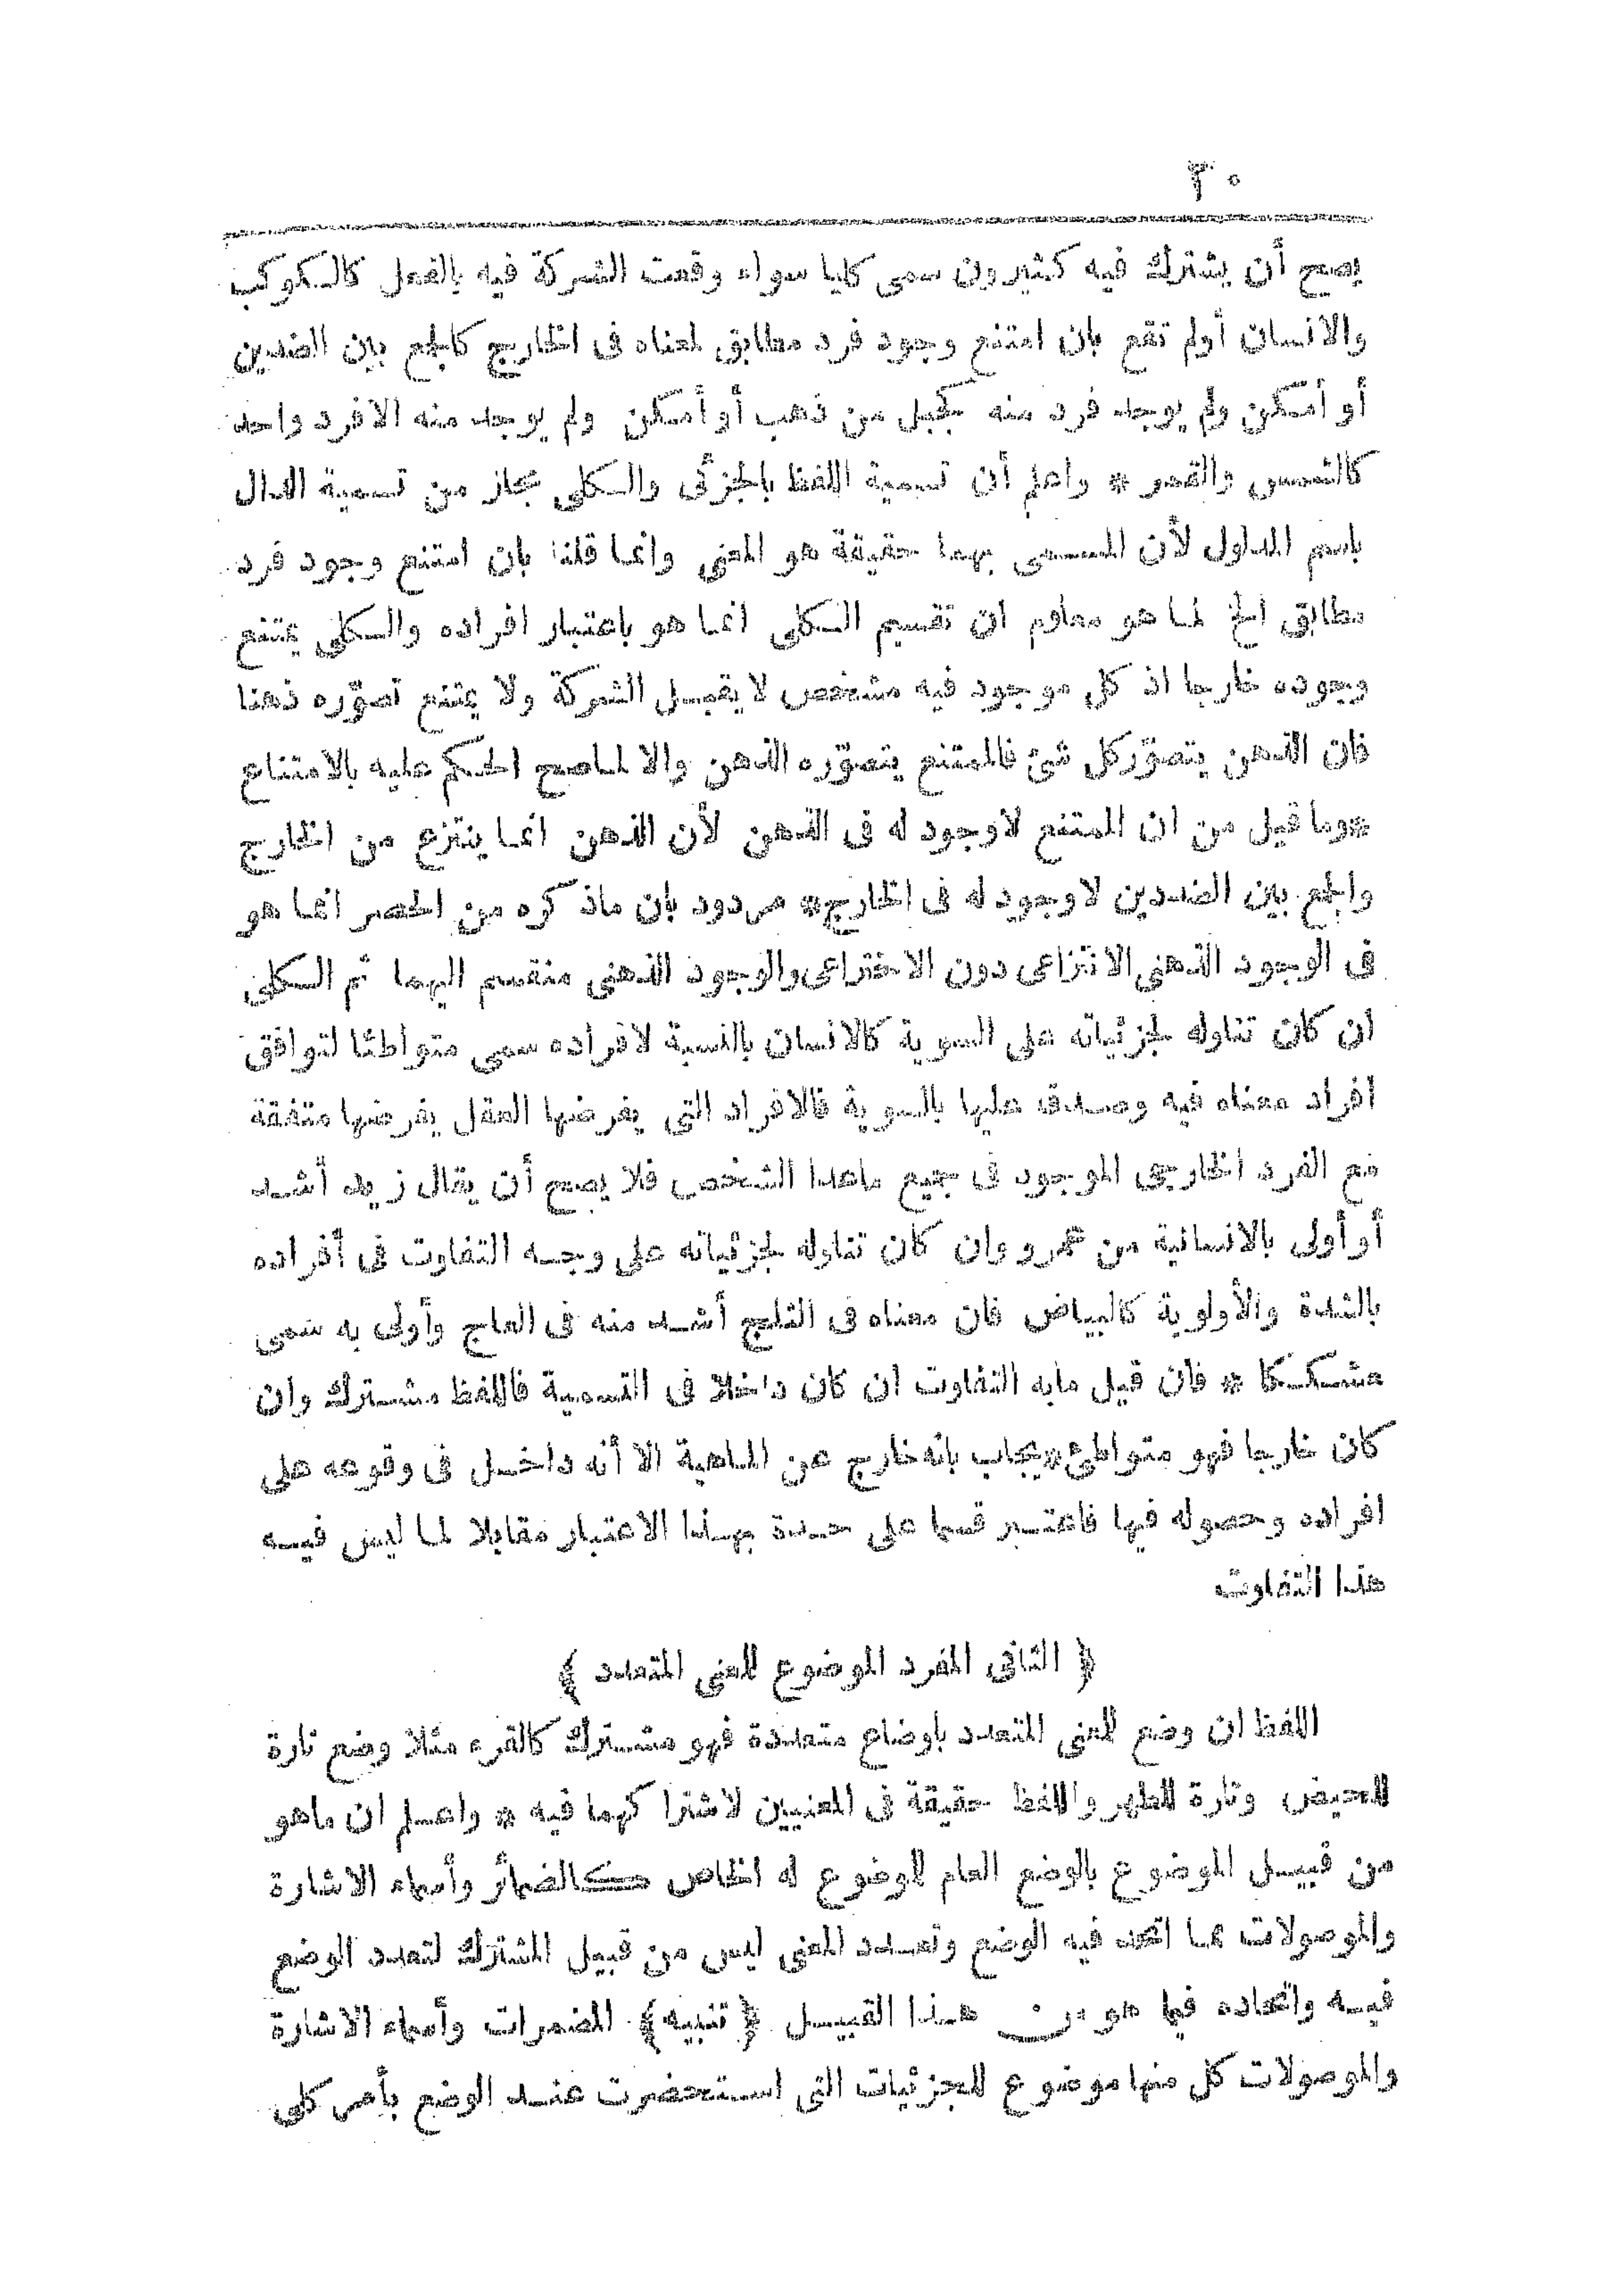 ٣٠
يصح أن يشترك فيه كثيرون سمى كليا سواء وقعت الشركة فيه بالفعل كالكوكب
والانسان أولم تقع بان امتنع وجود فرد مطابق لمعناه فى الخارج كالجمع بين الضدين
أو أمكن ولم يوجد فرد منه كجبل من ذهب أو أمكن ولم يوجد منه الا فرد واحد
كالشمس والقمر * واعلم أن تسمية اللفظ بالجزئى والكلى مجاز من تسمية الدال
باسم المدلول لأن المسمى بهما حقيقة هو المعنى وانما قلنا بان امتنع وجود فرد
مطابق الخ لما هو معلوم ان تقسيم الكلى انما هو باعتبار افراده والكلى يمتنع
وجوده خارجا اذ كل موجود فيه مشخص لا يقبل الشركة ولا يمتنع تصوّره ذهنا
فان الذهن يتصوّر كل شئ فالممتنع يتصوّره الذهن والا لما صح الحكم عليه بالامتناع
*وما قيل من ان الممتنع لا وجود له فى الذهن لأن الذهن انما ينتزع من الخارج
والجمع بين الضدين لا وجود له فى الخارج* مردود بان ما ذكره من الحصر انما هو
فى الوجود الذهنى الانتزاعى دون الاختراعى والوجود الذهنى منقسم اليهما ثم الكلى
ان كان تناوله لجزئياته على السوية كالانسان بالنسبة لافراده سمى متواطئا لتوافق
افراد معناه فيه وصدق عليها بالسوية فالافراد التى يفرضها العقل يفرضها متفقة
مع الفرد الخارجى الموجود فى جميع ماعدا الشخص فلا يصح أن يقال زيد أشد
أو أولى بالانسانية من عمرو وان كان تناوله لجزئياته على وجه التفاوت فى أفراده
بالشدة والأولوية كالبياض فان معناه فى الثلج أشد منه فى العاج وأولى به سمى
مشككا * فان قيل مابه التفاوت ان كان داخلا فى التسمية فاللفظ مشترك وان
كان خارجا فهو متواطئ*يجاب بانه خارج عن الماهية الا أنه داخل فى وقوعه على
افراده وحصوله فيها فاعتبر قسما على حدة بهذا الاعتبار مقابلا لما ليس فيه
هذا التفاوت
﴿ الثانى المفرد الموضوع للمعنى المتعدد ﴾
اللفظ ان وضع للمعنى المتعدد باوضاع متعددة فهو مشترك كالقرء مثلا وضع تارة
للحيض وتارة للطهر واللفظ حقيقة فى المعنيين لاشتراكهما فيه * واعلم ان ماهو
من قبيل الموضوع بالوضع العام للموضوع له الخاص كالضمائر وأسماء الاشارة
والموصولات مما اتحد فيه الوضع وتعدد المعنى ليس من قبيل المشترك لتعدد الوضع
فيه واتحاده فيما هو من هذا القبيل ﴿ تنبيه ﴾ المضمرات وأسماء الاشارة
والموصولات كل منها موضوع للجزئيات التى استحضرت عند الوضع بأمر كلى